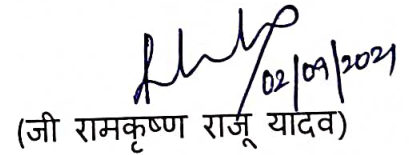 02/09/2021
(जी रामकृष्ण राजू यादव)